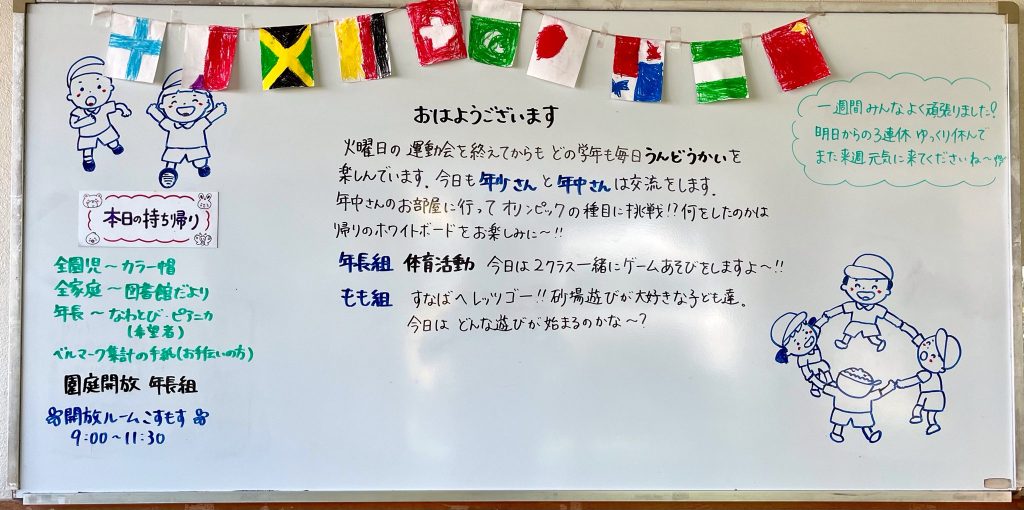 おはようございます
火曜日の運動会を終えてからも どの学年も毎日うんどうかいを
楽しんでいます。今日も年少さんと年中さんは交流をします。
年中さんのお部屋に行って オリンピックの種目に挑戦!?何をしたのかは
帰りのホワイトボードをお楽しみに〜!!
年長組 体育活動 今日は2クラス一緒にゲームあそびをしますよ〜!!
もも組 すなばへレッツゴー!!砂場遊びが大好きな子ども達。
今日は どんな遊びが始まるのかな〜?
一週間みんなよく頑張りました!
明日からの3連休 ゆっくり休んで
また来週 元気に来てくださいね〜
本日の持ち帰り
全園児〜カラー帽
全家庭〜図書館だより
年長〜なわとび・ピアニカ
(希望者)
ベルマーク集計の手紙(お手伝いの方)
園庭開放 年長組
開放ルームこすもす
9:00〜11:30